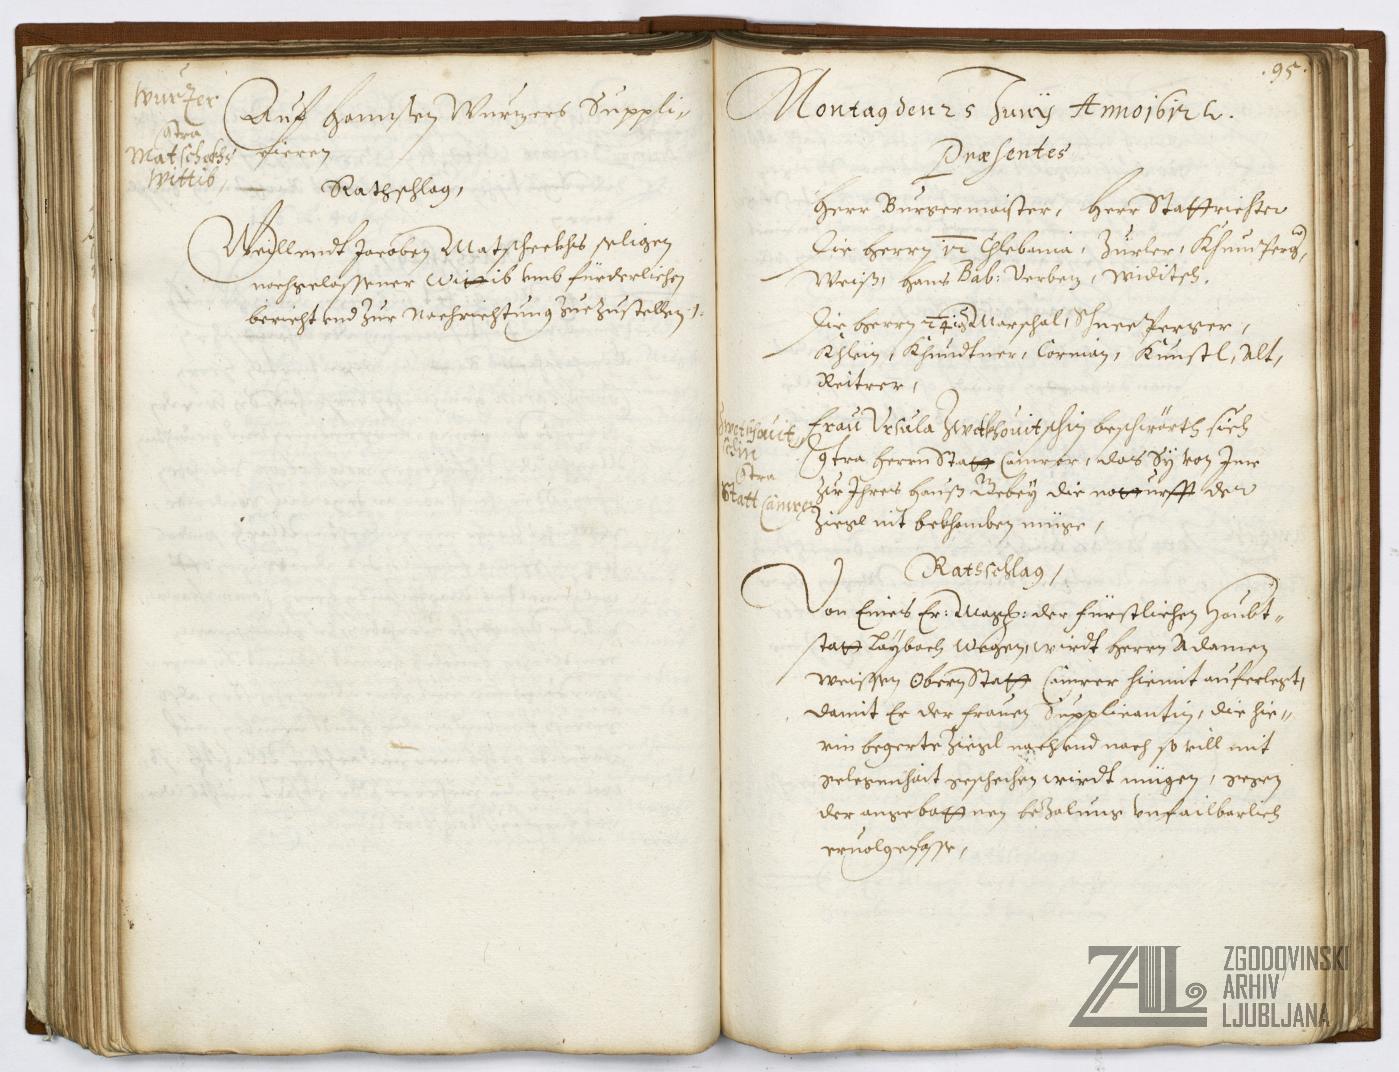 Wurzer
ctra
Matscheckhs
Wittib,
Auf Hannsen Wurzers Suppli-
cieren
Rathschlag,
Weillendt Jacoben Matscheekhs seligen
nachgelassener Wittib vmb fürderlichen
bericht vnd Zur Nachrichtung Zue Zustellen
.95.
Montag den 25 Junij Anno 1612.
Præsentes
Herr Burgermaister, Herr Stattrichter
Die Herrn 12 Chlebania, Zürler, Khumperg,
Weiß, Hans Bab: Verben, Widitsch.
Die Herrn 24ig Marschal, Schneeperger,
Khlein, Khundtner, Corman, Kunstl, Alt,
Reitrer,
Zwetkhouit
schin
ctra
Statt Camrer
Frau Vrsula Zwetkhouitschin beschwärth sich
ctra Herrn Statt Camrer, das Sy von Ime
zur Ihres Hauß Gebey die notturfft der
Ziegl nit bekhomben müge,
Ratsschlag,
Von Eines Er: Mag: der fürstlichen Haubt-
statt Laybach Wegen, wirdt Herrn Adamen
Weissen Obern Statt Camrer hiemit auferlegt,
damit Er der Frauen Supplicantin, die hie-
rin begerte Ziegl nach vnd nach so vill mit
gelegenhait geschechen wirdt mügen, gegen
der angebottnen beZalung vnfailbarlich
eruolgen lasse,
ZAL
ZGODOVINSKI
ARHIV
LJUBLJANA